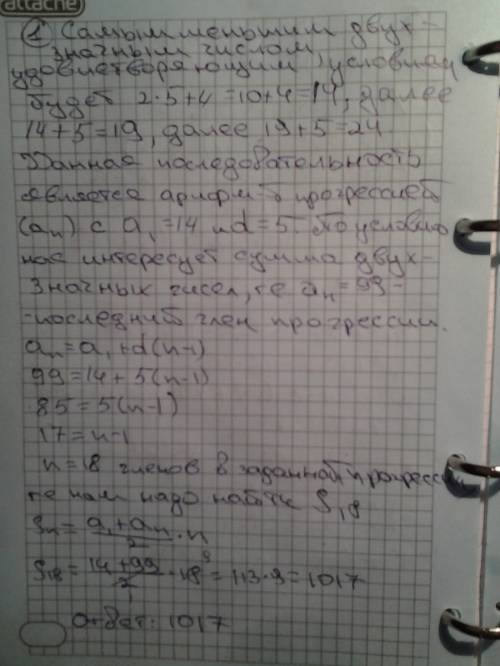 attache
① Самым меньшим двух-
значным числом,
удовлетворяющим условием
будет 2·5+4=10+4=14, далее
14+5=19, далее 19+5=24
Данная последовательность
является арифм-й прогрессией
(aₙ) с a₁=14 и d=5. По условию
нас интересует сумма двух-
значных чисел, те aₙ=99-
-последний член прогрессии.
aₙ=a₁+d(n-1)
99=14+5(n-1)
85=5(n-1)
17=n-1
n=18 членов в заданной прогрессии
те нам надо найти S₁₈
Sₙ = (a₁+aₙ)/2 · n
S₁₈ = (14+99)/2 · 18 ⁹ = 113·9=1017
Ответ: 1017